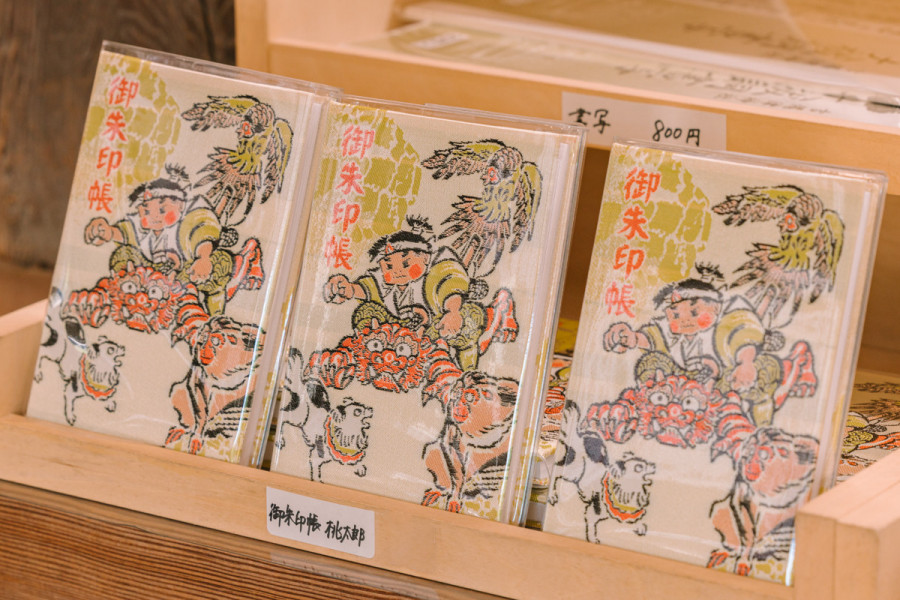 御朱印帳
御朱印帳
御朱印帳
書写 800円
御朱印帳 桃太郎